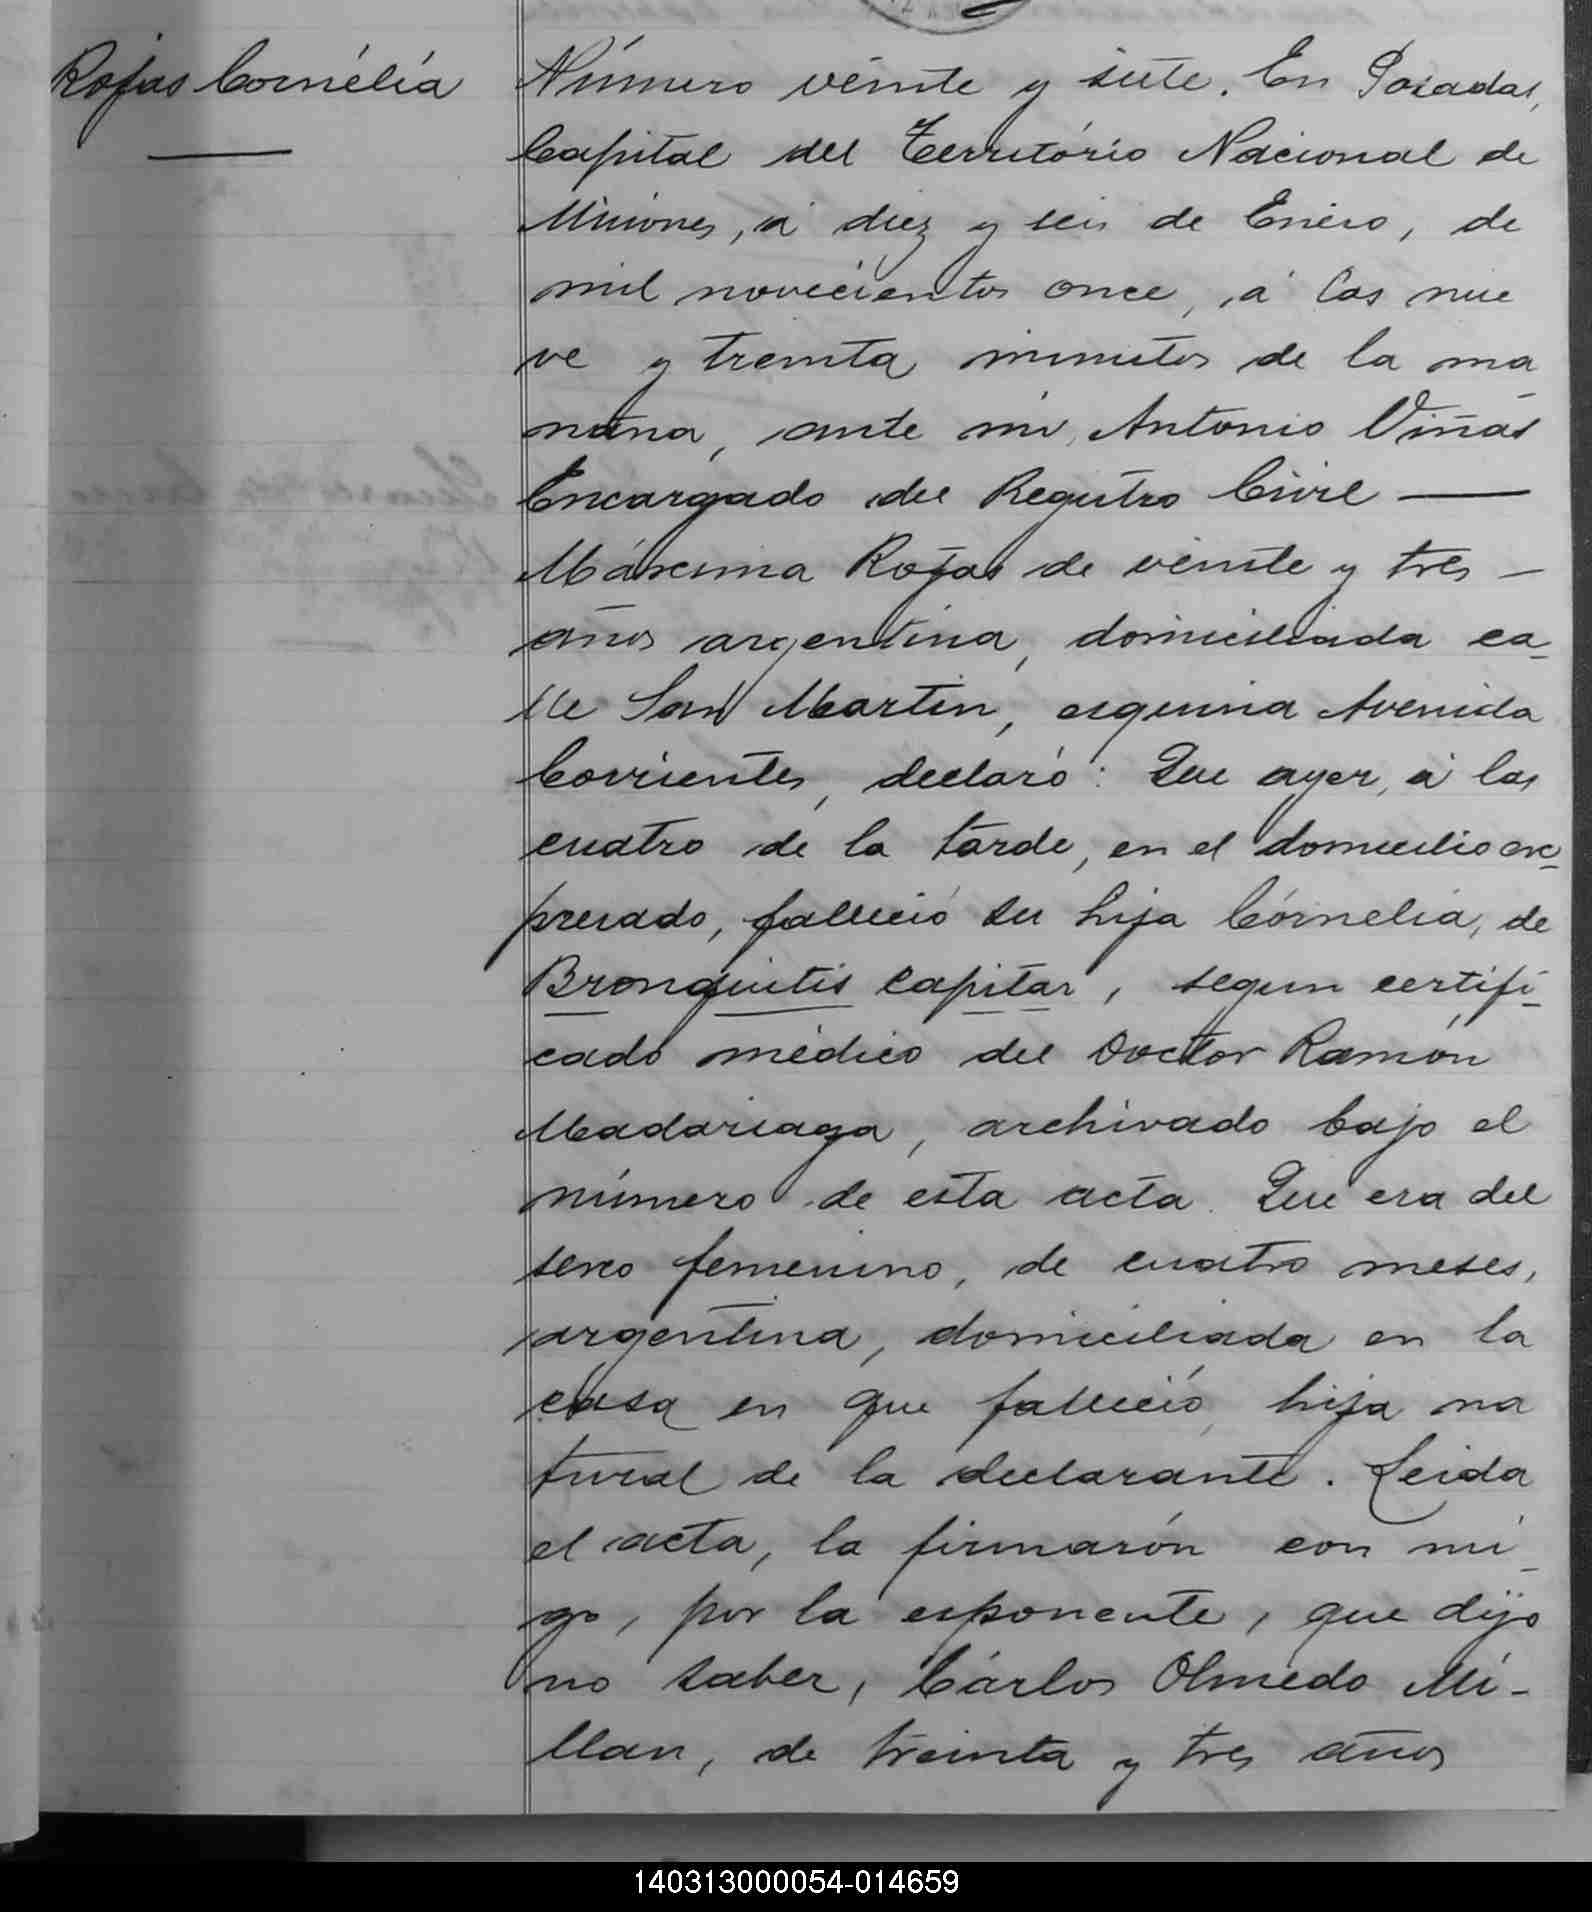 Rojas Cornélia
Número veinte y siete. En Posadas,
Capital del Território Nacional de
Misiones, á diez y seis de Enero, de
mil novecientos once, á las nue
ve y treinta minutos de la ma
ñana, ante mi, Antonio Viñas
Encargado del Registro Civil —
Máxima Rojas de veinte y tres —
años argentina, domiciliada ca-
lle San Martin, esquina Avenida
Corrientes, declaró: Que ayer, á las
cuatro de la tarde, en el domicilio ex-
presado, falleció su hija Córnelia, de
Bronquitis capitar, segun certifi-
cado médico del Doctor Ramón
Madariaga, archivado bajo el
número de esta acta. Que era del
sexo femenino, de cuatro meses,
argentina, domiciliada en la
casa en que falleció, hija na
tural de la declarante. Leida
el acta, la firmarón con mi-
go, por la esponente, que dijo
no saber, Cárlos Olmedo Mi-
llan, de treinta y tres años
140313000054-014659